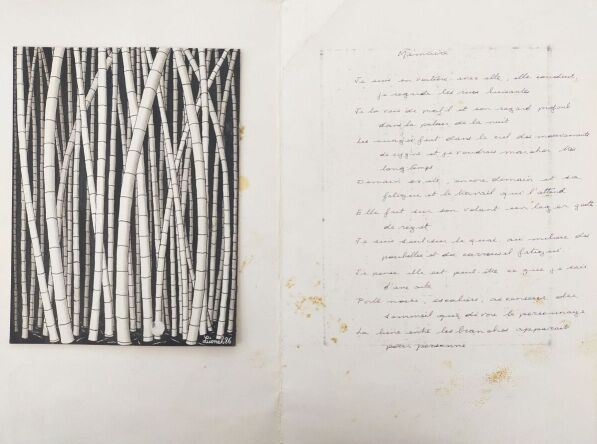 Lionel 86
Mémoire
Je suis en voiture avec elle, elle conduit,
je regarde les rues luisantes
Je la vois de profil et son regard profond
dans la pâleur de la nuit
Les nuages font dans le ciel des mouvements
de cygne et je voudrais marcher très
longtemps
Demain existe, encore demain et sa
fatigue et le travail qui l'attend
Elle fait sur son volant un léger geste
de regret
Je suis sur le quai au milieu des
poubelles et du carreau fatigué
Je pense elle est peut-être ce que je sais
d'une
Porte noire, escalier, ascenseur
sommeil qui dévore le personnage
La lune entre les branches apparaît
pour personne